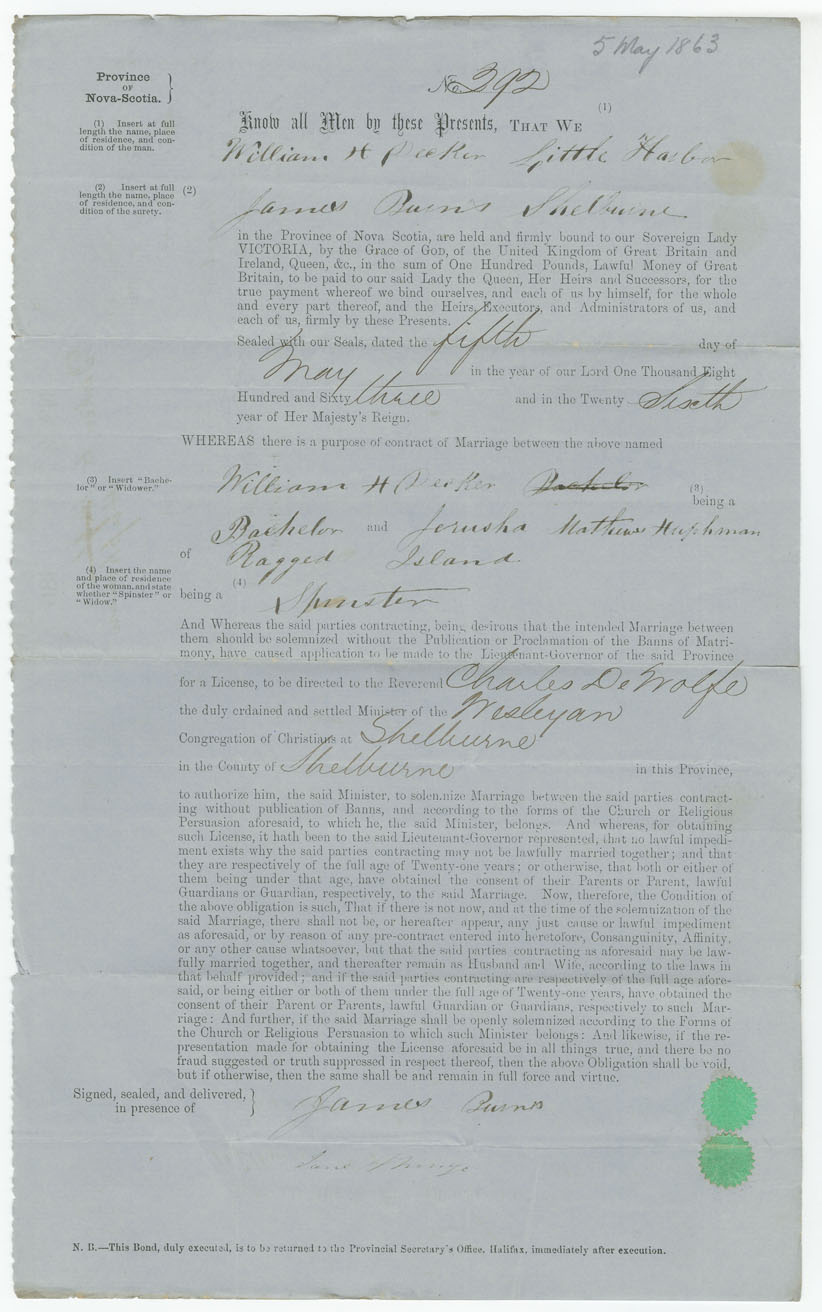 5 May 1863
Province
OF
Nova-Scotia.
No 392
(1)
(1) Insert at full
length the name, place
of residence, and con-
dition of the man.
Know all Men by these Presents, THAT WE
William H Decker Little Harbor
(2) Insert at full
length the name, place
of residence, and con-
dition of the surety.
(2)
James Burns Shelburne
in the Province of Nova Scotia, are held and firmly bound to our Sovereign Lady
VICTORIA, by the Grace of GOD, of the United Kingdom of Great Britain and
Ireland, Queen, &c., in the sum of One Hundred Pounds, Lawful Money of Great
Britain, to be paid to our said Lady the Queen, Her Heirs and Successors, for the
true payment whereof we bind ourselves, and each of us by himself, for the whole
and every part thereof, and the Heirs, Executors, and Administrators of us, and
each of us, firmly by these Presents.
Sealed with our Seals, dated the fifth day of
May in the year of our Lord One Thousand Eight
Hundred and Sixty three and in the Twenty Sixth
year of Her Majesty's Reign.
WHEREAS there is a purpose of contract of Marriage between the above named
(3) Insert "Bache-
lor" or "Widower."
William H Decker Bachelor (3)
being a
Bachelor and Jerusha Mathews Huphman
of Ragged Island
(4) Insert the name
and place of residence
of the woman, and state
whether "Spinster" or
"Widow."
(4)
being a Spinster
And Whereas the said parties contracting, being desirous that the intended Marriage between
them should be solemnized without the Publication or Proclamation of the Banns of Matri-
mony, have caused application to be made to the Lieutenant-Governor of the said Province
for a License, to be directed to the Reverend Charles DeWolfe
the duly ordained and settled Minister of the Wesleyan
Congregation of Christians at Shelburne
in the County of Shelburne in this Province,
to authorize him, the said Minister, to solemnize Marriage between the said parties contract-
ing without publication of Banns, and according to the forms of the Church or Religious
Persuasion aforesaid, to which he, the said Minister, belongs. And whereas, for obtaining
such License, it hath been to the said Lieutenant-Governor represented, that no lawful impedi-
ment exists why the said parties contracting may not be lawfully married together; and that
they are respectively of the full age of Twenty-one years; or otherwise, that both or either of
them being under that age, have obtained the consent of their Parents or Parent, lawful
Guardians or Guardian, respectively, to the said Marriage. Now, therefore, the Condition of
the above obligation is such, That if there is not now, and at the time of the solemnization of the
said Marriage, there shall not be, or hereafter appear, any just cause or lawful impediment
as aforesaid, or by reason of any pre-contract entered into heretofore, Consanguinity, Affinity,
or any other cause whatsoever, but that the said parties contracting as aforesaid may be law-
fully married together, and thereafter remain as Husband and Wife, according to the laws in
that behalf provided; and if the said parties contracting are respectively of the full age afore-
said, or being either or both of them under the full age of Twenty-one years, have obtained the
consent of their Parent or Parents, lawful Guardian or Guardians, respectively to such Mar-
riage: And further, if the said Marriage shall be openly solemnized according to the Forms of
the Church or Religious Persuasion to which such Minister belongs: And likewise, if the re-
presentation made for obtaining the License aforesaid be in all things true, and there be no
fraud suggested or truth suppressed in respect thereof, then the above Obligation shall be void,
but if otherwise, then the same shall be and remain in full force and virtue.
Signed, sealed, and delivered,
in presence of
James Burns
N. B.—This Bond, duly executed, is to be returned to the Provincial Secretary's Office, Halifax, immediately after execution.